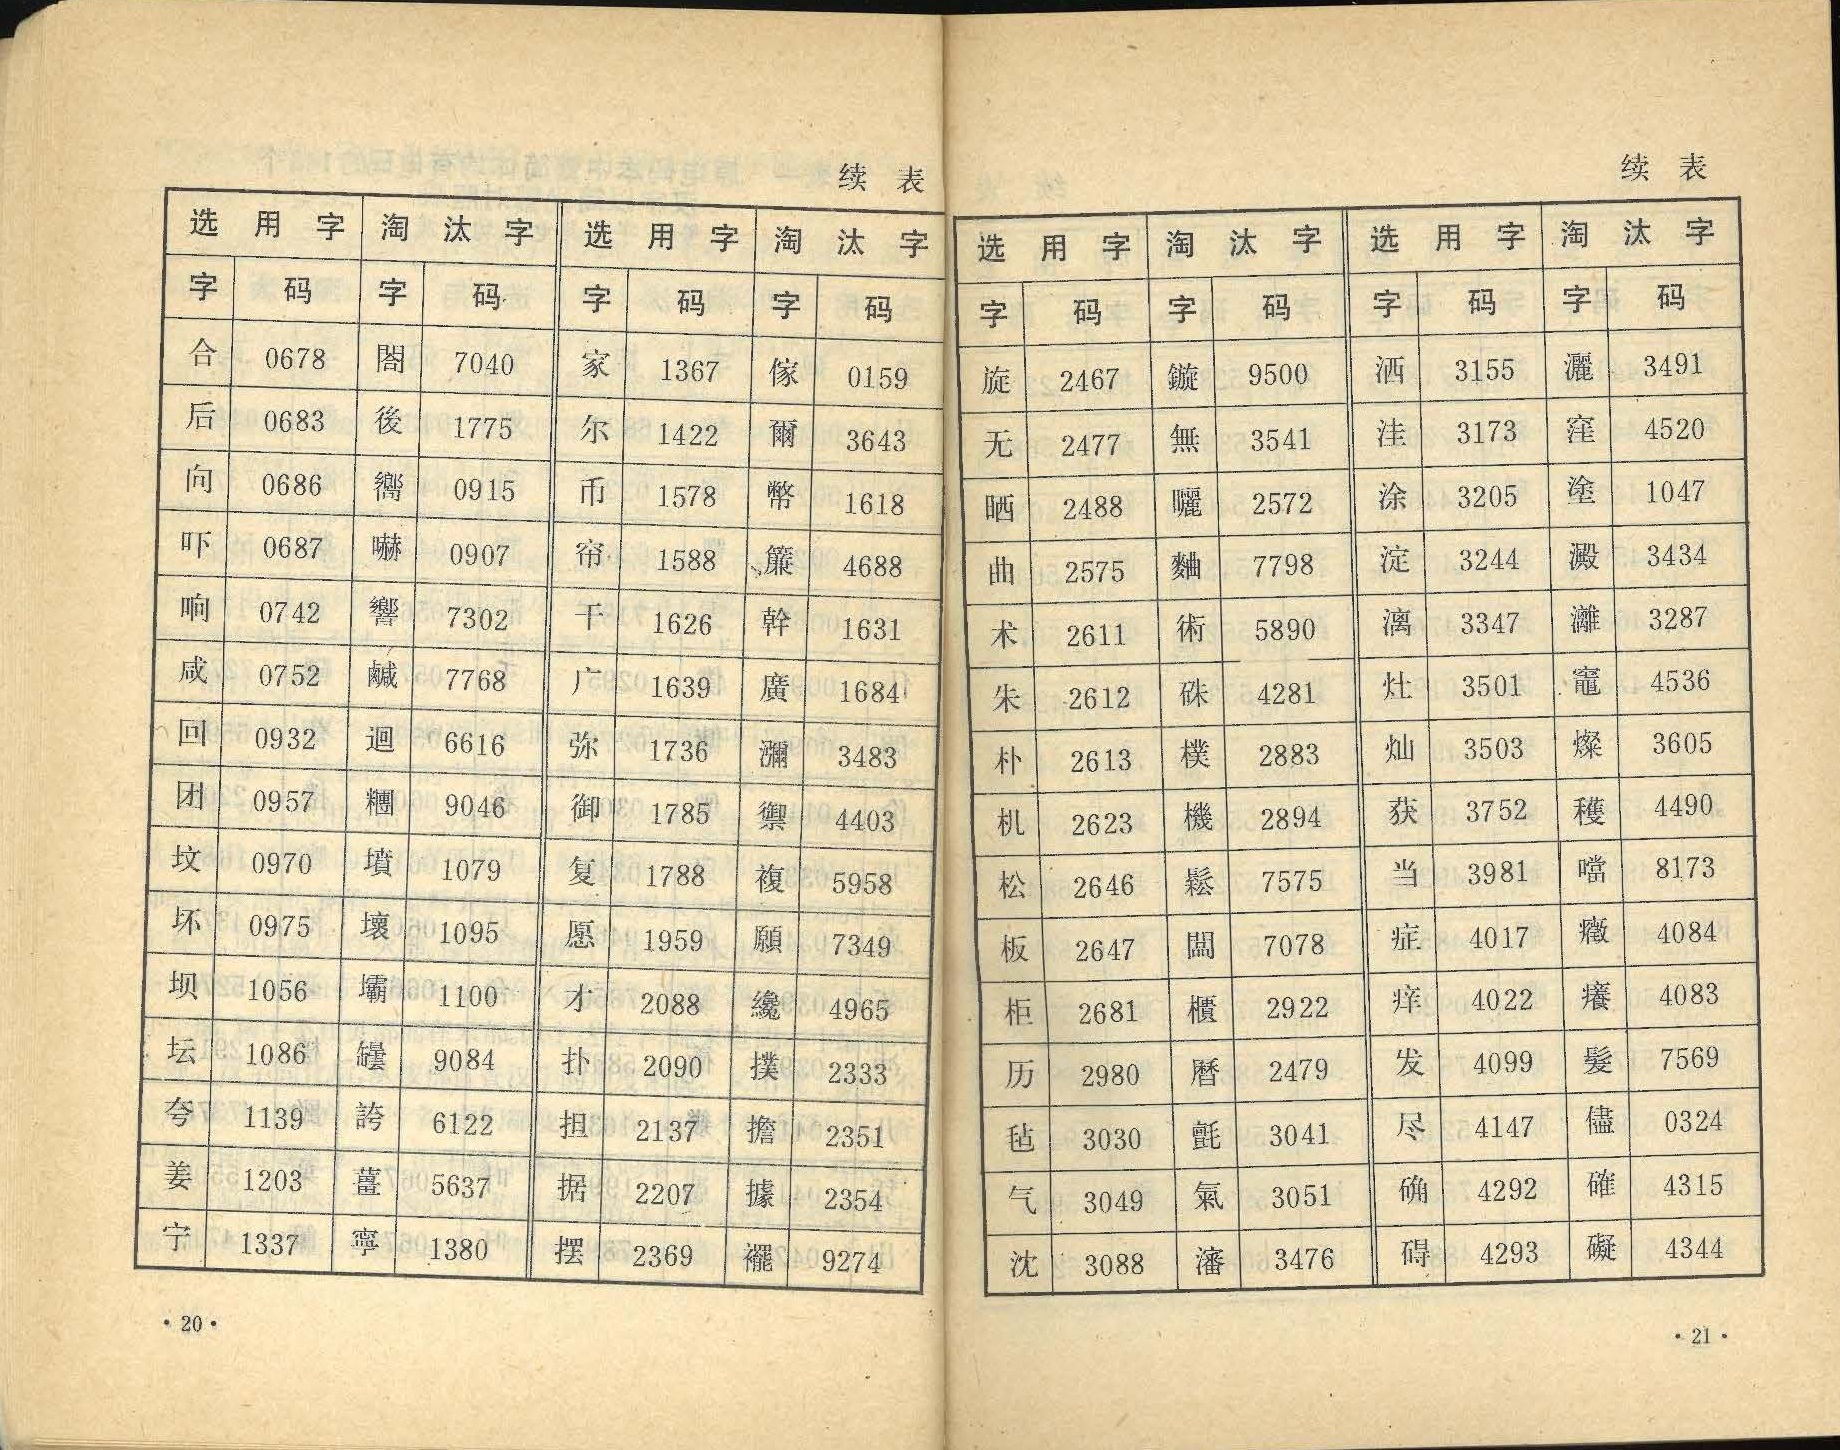 续 表
选 用 字 淘 汰 字 选 用 字 淘 汰 字
字 码 字 码 字 码 字 码
合 0678 閤 7040 家 1367 傢 0159
后 0683 後 1775 尔 1422 爾 3643
向 0686 嚮 0915 币 1578 幣 1618
吓 0687 嚇 0907 帘 1588 簾 4688
响 0742 響 7302 干 1626 幹 1631
咸 0752 鹹 7768 广 1639 廣 1684
回 0932 迴 6616 弥 1736 瀰 3483
团 0957 糰 9046 御 1785 禦 4403
坟 0970 墳 1079 复 1788 複 5958
坏 0975 壞 1095 愿 1959 願 7349
坝 1056 壩 1100 才 2088 纔 4965
坛 1086 罎 9084 扑 2090 撲 2333
夸 1139 誇 6122 担 2137 擔 2351
姜 1203 薑 5637 据 2207 據 2354
宁 1337 寧 1380 摆 2369 襬 9274
·20·
续 表
选 用 字 淘 汰 字 选 用 字 淘 汰 字
字 码 字 码 字 码 字 码
旋 2467 鏇 9500 洒 3155 灑 3491
无 2477 無 3541 洼 3173 窪 4520
晒 2488 曬 2572 涂 3205 塗 1047
曲 2575 麯 7798 淀 3244 澱 3434
术 2611 術 5890 漓 3347 灕 3287
朱 2612 硃 4281 灶 3501 竈 4536
朴 2613 樸 2883 灿 3503 燦 3605
机 2623 機 2894 获 3752 穫 4490
松 2646 鬆 7575 当 3981 噹 8173
板 2647 闆 7078 症 4017 癥 4084
柜 2681 櫃 2922 痒 4022 癢 4083
历 2980 曆 2479 发 4099 髮 7569
毡 3030 氈 3041 尽 4147 儘 0324
气 3049 氣 3051 确 4292 確 4315
沈 3088 瀋 3476 碍 4293 礙 4344
·21·